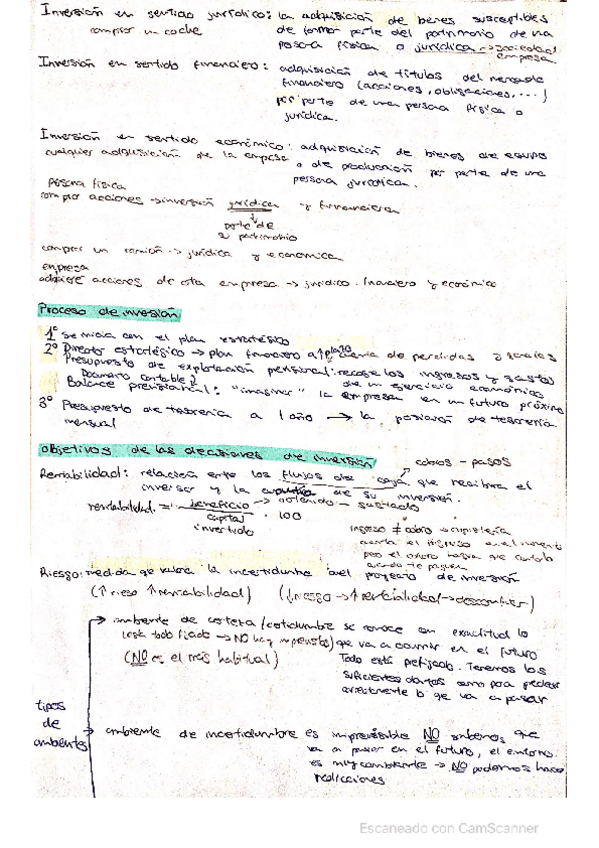 Inversión en sentido jurídico: la adquisición de bienes susceptibles
comprar un coche de formar parte del patrimonio de una
persona física o jurídica → sociedad
empresa
Inversión en sentido financiero: adquisición de títulos del mercado
financiero (acciones, obligaciones, ...)
por parte de una persona física o
jurídica.
Inversión en sentido económico: adquisición de bienes de equipo
cualquier adquisición de la empresa o de producción por parte de una
persona jurídica.
persona física
comprar acciones → inversión jurídica y financiera
parte de
patrimonio
comprar un camión → jurídica y economica
empresa
adquiere acciones de otra empresa → jurídico, financiero y económico
Proceso de inversión
1º Se inicia con el plan estratégico
2º Director estratégico → plan financiero a l/plazo cuenta de perdidas y ganancias
Presupuesto de explotación previsional: recoge los ingresos y gastos
Documento contable de un ejercicio económico
Balance previsional: "imaginar" la empresa en un futuro próximo
3º Presupuesto de tesorería a 1 año → la posición de tesorería
mensual
Objetivos de las decisiones de inversión
cobros - pagos
Rentabilidad: relación entre los flujos de caja que recibira el
inversor y la de su inversión.
rentabilidad = beneficio → obtenido - gastado
capital · 100
invertido
ingreso ≠ cobro
Riesgo: medida que valora la incertidumbre del proyecto de inversión
(↑ riesgo ↑ rentabilidad) (↓ riesgo → ↑ rentabilidad → desconfiar)
ambiente de certeza/certidumbre se conoce con exactitud lo
(esta todo fijado → NO hay imprevistos) que va a ocurrir en el futuro
(NO es el más habitual) Todo está prefijado. Tenemos los
suficientes datos como para predecir
correctamente lo que va a pasar
tipos
de
ambientes
ambiente de incertidumbre es imprevisible NO sabemos que
va a pasar en el futuro, el entorno
es muy cambiante → NO podemos hacer
predicciones
Escaneado con CamScanner